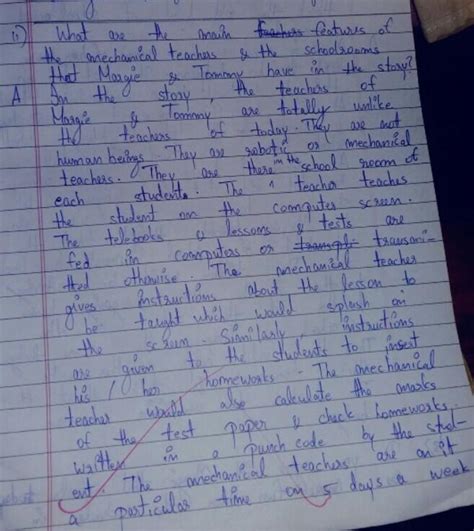 ii) What are the main features of
the mechanical teachers & the schoolrooms
that Margie & Tommy have in the story?
A In the story, the teachers of
Margie & Tommy are totally unlike
the teachers of today. They are not
human beings. They are robotic or mechanical
teachers. They are there in the school room of
each students. The teacher teaches
the student on the computer screen.
The telebooks & lessons & tests are
fed in computers or transmi-
tted otherwise. The mechanical teacher
gives instructions about the lesson to
be taught which would splash on
the screen. Similarly instructions
are given to the students to insert
his / her homeworks. The mechanical
teacher would also calculate the marks
of the test paper & check homeworks
written in a punch code by the stud-
ent. The mechanical teachers are on it
a particular time on 5 days a week